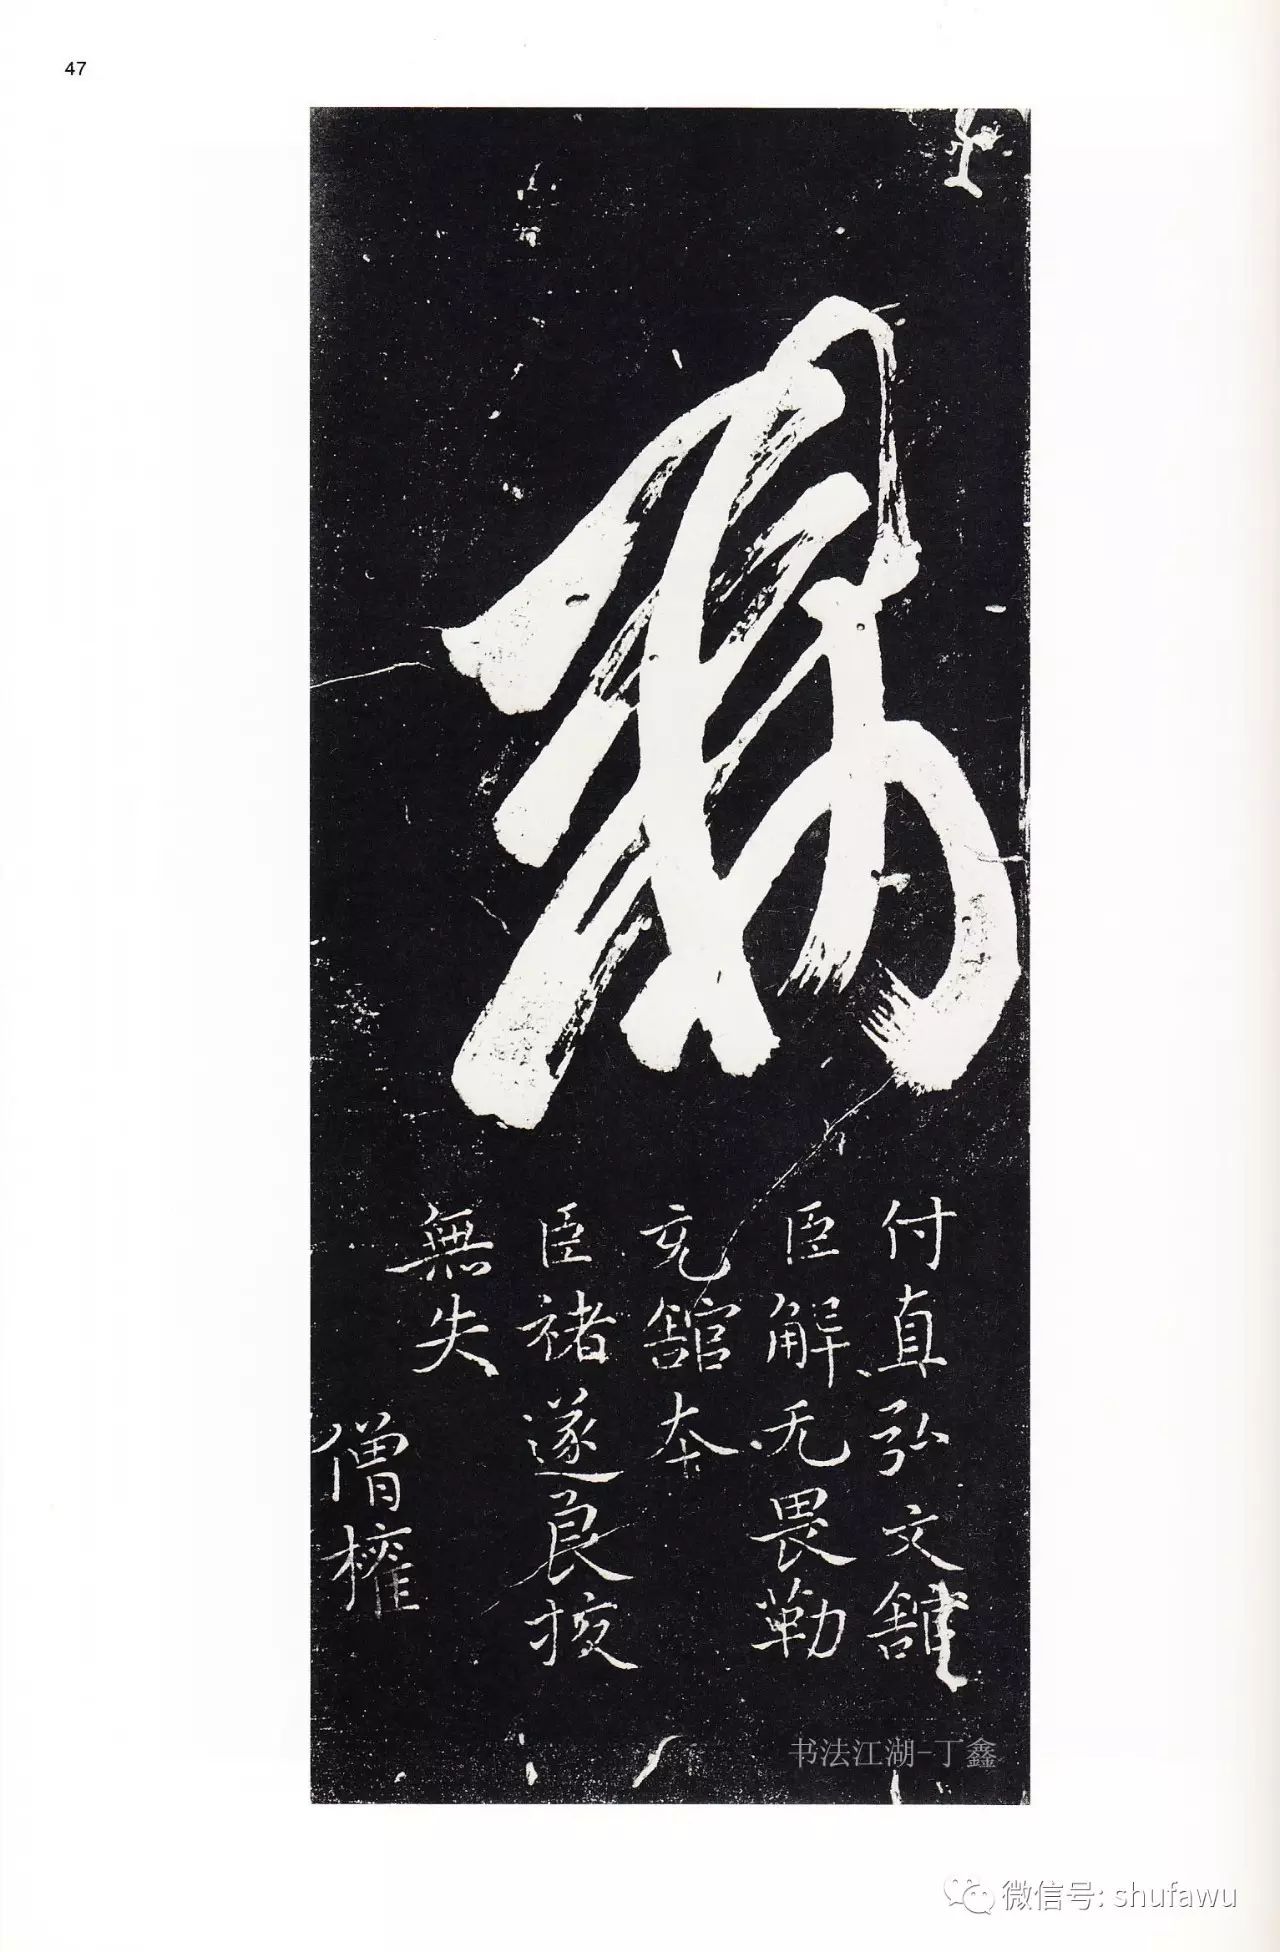 47
敕
付直弘文館
臣解无畏勒
充館本
臣褚遂良挍
無失
僧權
书法江湖-丁鑫
微信号: shufawu